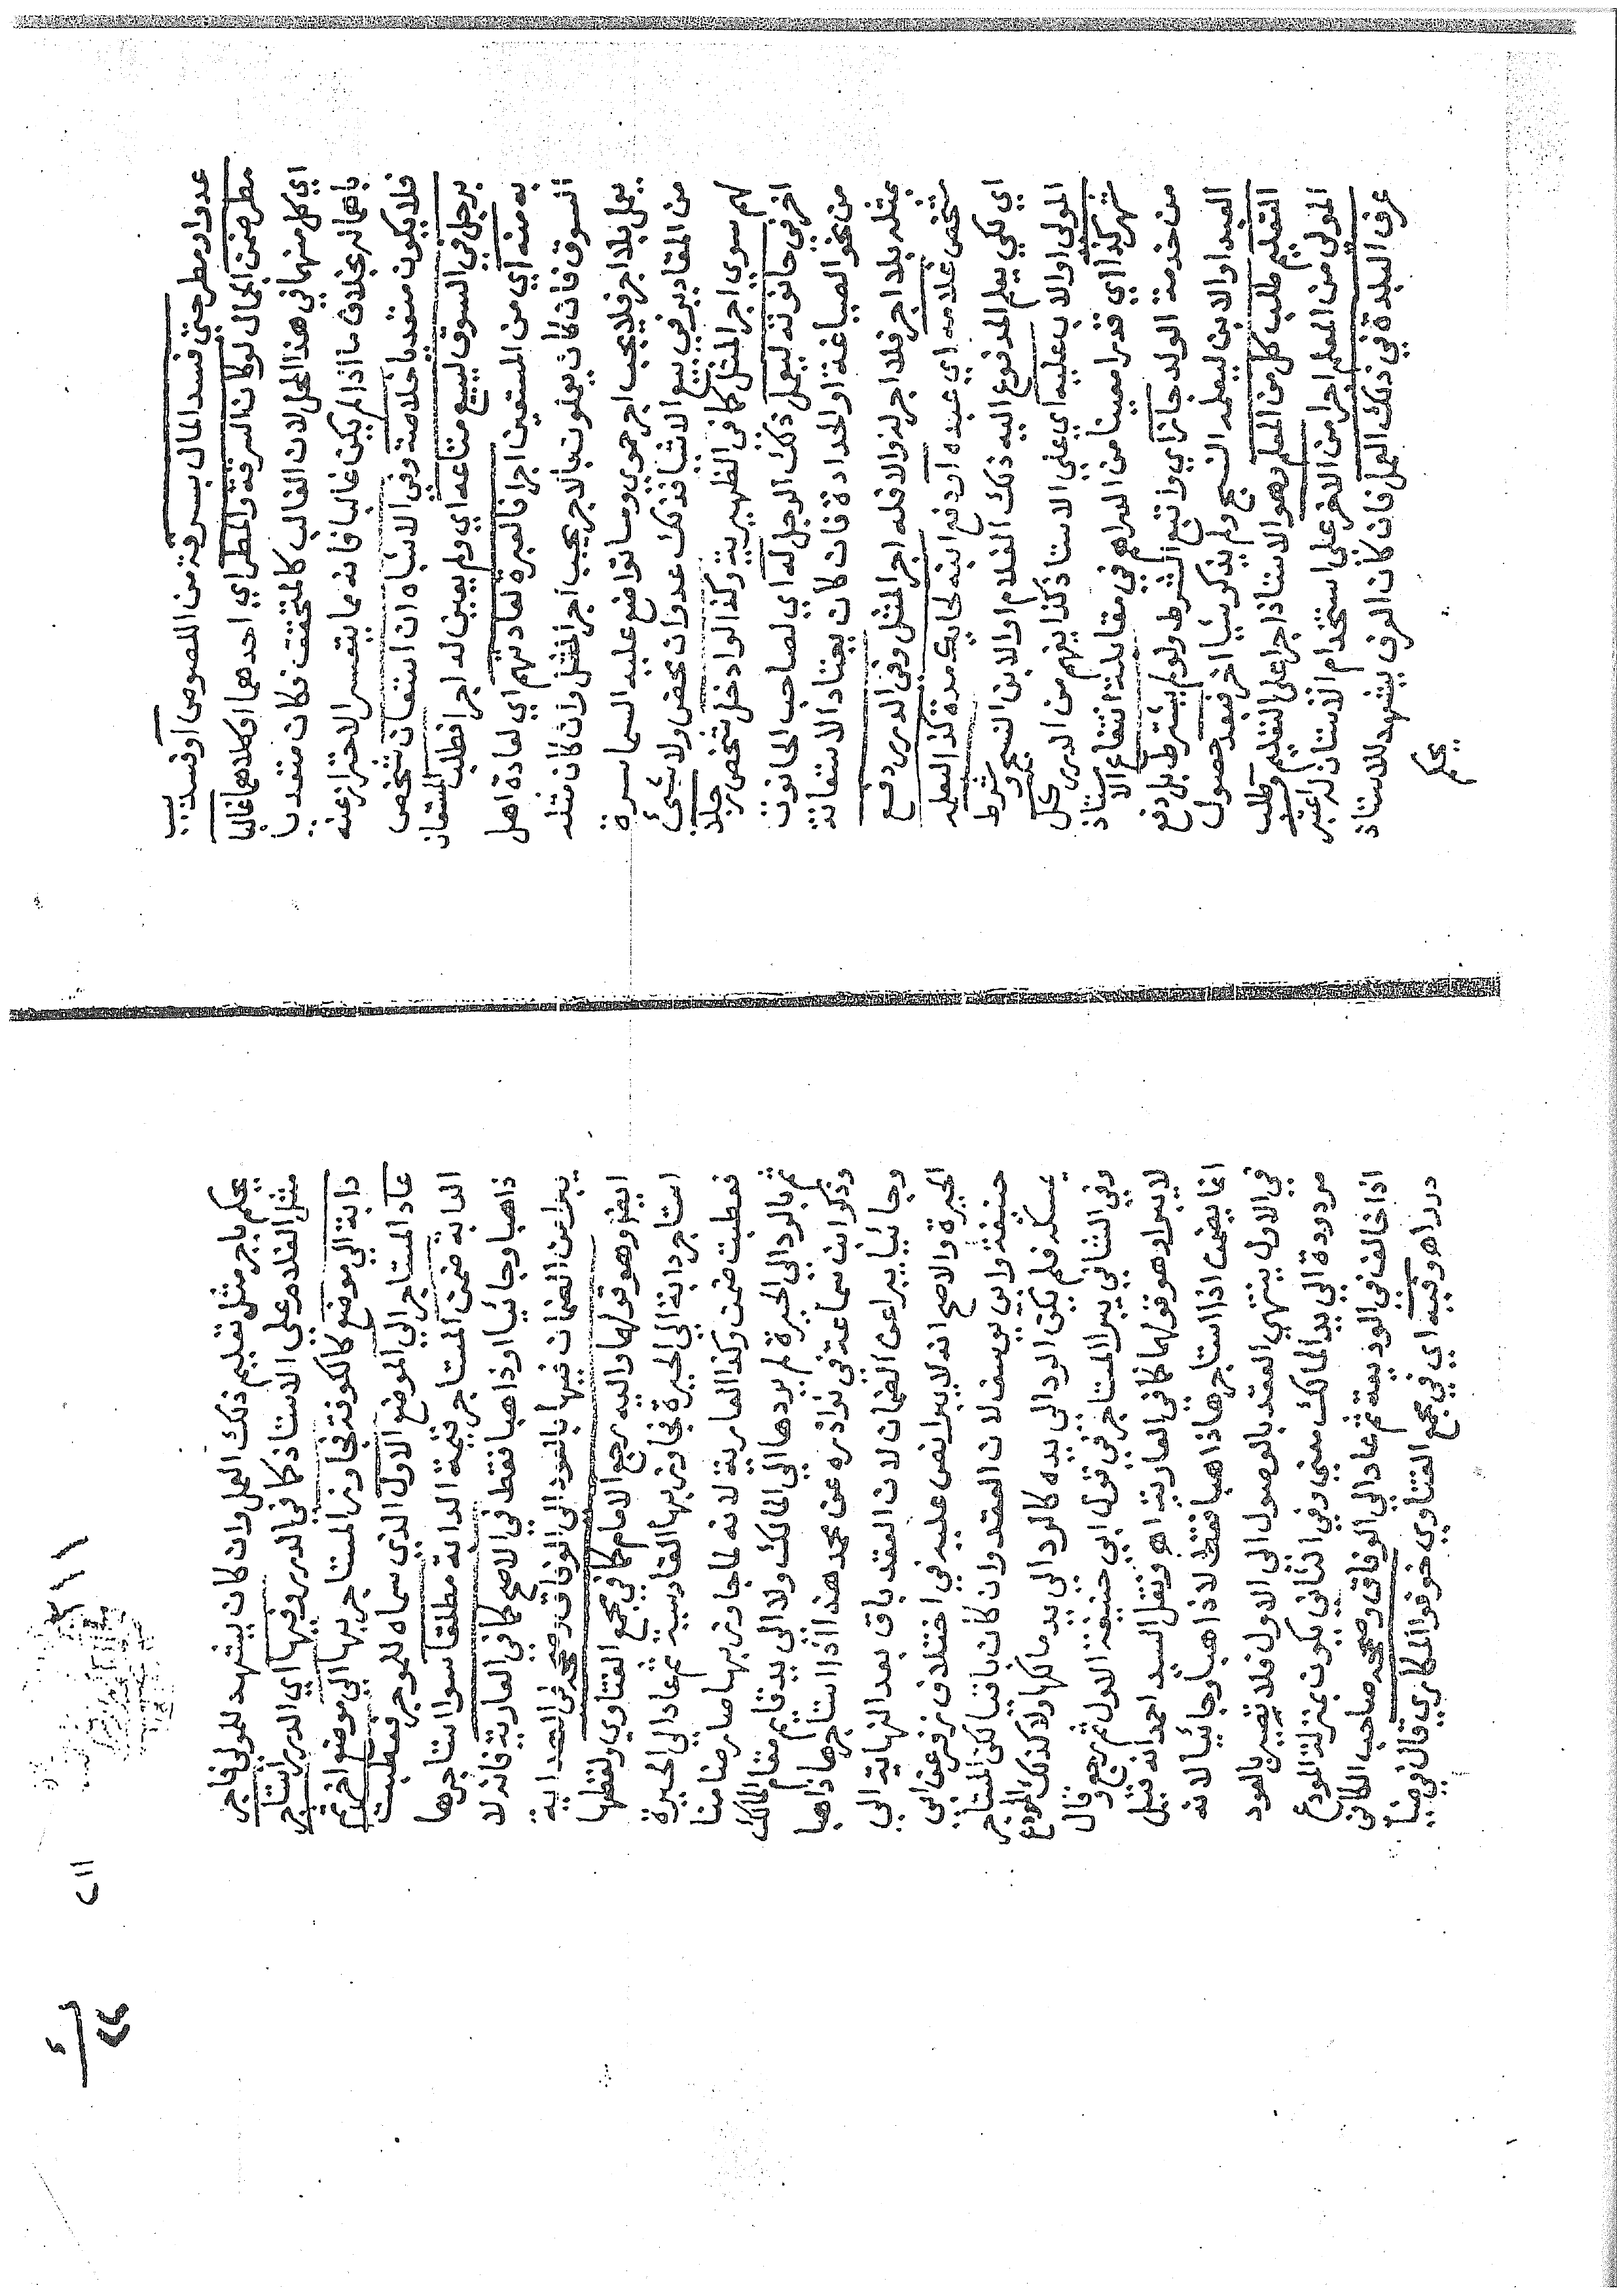 عدوا ومطر حتي فسد المال بسرقة من اللصوص او فسد بسبب
مطر ضمن الحمال لو كان السرقة والمطر اي احدهما او كلاهما غالبا
اي كل منهما في هذا المحل لان الغالب كالمتحقق فكان متعديا
باهماله بخلاف ما اذا لم يكن غالبا فانه مما يتعسر الاحتراز عنه
فلا يكون متعديا خلاصة وفي الاشباه ان استعان شخص
برجل في السوق ليبيع متاعه اي ولم يعين له اجرا فطلب المستعان
به منه اي من المستعين اجرا فالعبرة لعادتهم اي لعادة اهل
السوق فان كان يعملون بالاجر يجب اجر المثل وان كان مثله
يعمل بلا اجر فلا يجب اجر حموي وما تواضع عليه السماسرة
من المقادير في بيع الاشيا فذلك عدوان محض ولا شيء
لهم سوي اجر المثل كما في الظهيرية وكذا لو ادخل شخص رجلا
اخر في حانوته ليعمل ذلك الرجل له اي لصاحب الحانوت
من نحو الصياغة او الحدادة فان كان يعتاد الاستعانة
بمثله بلا اجر فلا اجر له والا فله اجر المثل وفي الدرر دفع
شخص غلامه اي عبده او دفع ابنه لحايك مدة كذا ليعلمه
اي لكي يعلم المدفوع اليه ذلك الغلام او الابن النسج وشرط
المولي او الاب عليه اي علي الاستاذ كذا يفهم من الدرر كل
شهر كذا اي قدرا معينا من الدراهم في مقابلة انتفاع الاستاذ
من خدمة الولد جاز اي واتبع الشرط ولو لم يشترط بل دفع
العبد او الابن ليعلمه النسج ولم يذكر شيا اخر فبعد حصول
التعليم طلب كل من المعلم وهو الاستاذ اجرا علي التعليم وطلب
المولي من المعلم اجرا من الاخر علي استخدام الاستاذ له اعتبر
عرف البلدة في ذلك العمل فان كان العرف يشهد للاستاذ
يحكم
يحكم باجر مثل تعليم ذلك العمل وان كان يشهد للمولي فاجر
مثل الغلام علي الاستاذ كما في الدرر وفيها اي الدرر استاجر
دابة الي موضع كالكوفة فجاوز المستاجر بها الي موضع اخر ثم
عاد المستاجر الي الموضع الاول الذي سماه للموجر فعطبت
الدابة ضمن المستاجر قيمة الدابة مطلقا سوا استاجرها
ذاهبا وجائيا او ذاهبا فقط في الاصح كما في العارية فانه لا
يبرا عن الضمان فيها بالعود الي الوفاق وصححه في الهداية
ايضا وهو قولهما واليه رجع الامام كما في مجمع الفتاوي ولفظها
استاجر دابة الي الحيرة فجاوز بها القادسية ثم عاد الي الحيرة
فعطبت ضمن وكذا العارية لانه لما جاوز بها صار ضامنا
ثم بالرد الي الحيرة لم يردها الي المالك ولا الي يد قايم مقام المالك
وذكر ابن سماعة في نوادره عن محمد هذا اذا استاجرها ذاهبا
وجائيا يبرا عن الضمان لان العقد باق بعد النهاية الي
الحيرة والاصح انه لا يبرا نص عليه في اختلاف زفر عن ابي
حنيفة وابي يوسف لان العقد وان كان باقيا لكن المستاجر
يمسكه فلم يكن الرد الي يده كالرد الي يد مالكها ولا كذلك المودع
وفي الثاني يبرا المستاجر في قول ابي حنيفة الاول ثم رجع وقال
لا يبرا وهو قولهما كما في العارية اهـ ونقل السيد احمد انه قيل
انما يضمن اذا استاجرها ذاهبا فقط لا ذاهبا وجائيا لانه
في الاول ينتهي العقد بالوصول الي الاول فلا تصير بالعود
مردودة الي يد المالك معني وفي الثاني يكون بمنزلة المودع
اذا خالف في الوديعة ثم عاد الي الوفاق وصححه صاحب الكافي
درر اهـ وفيه اي في مجمع الفتاوي خوفوا المكاري قال في ضيا
٢١١